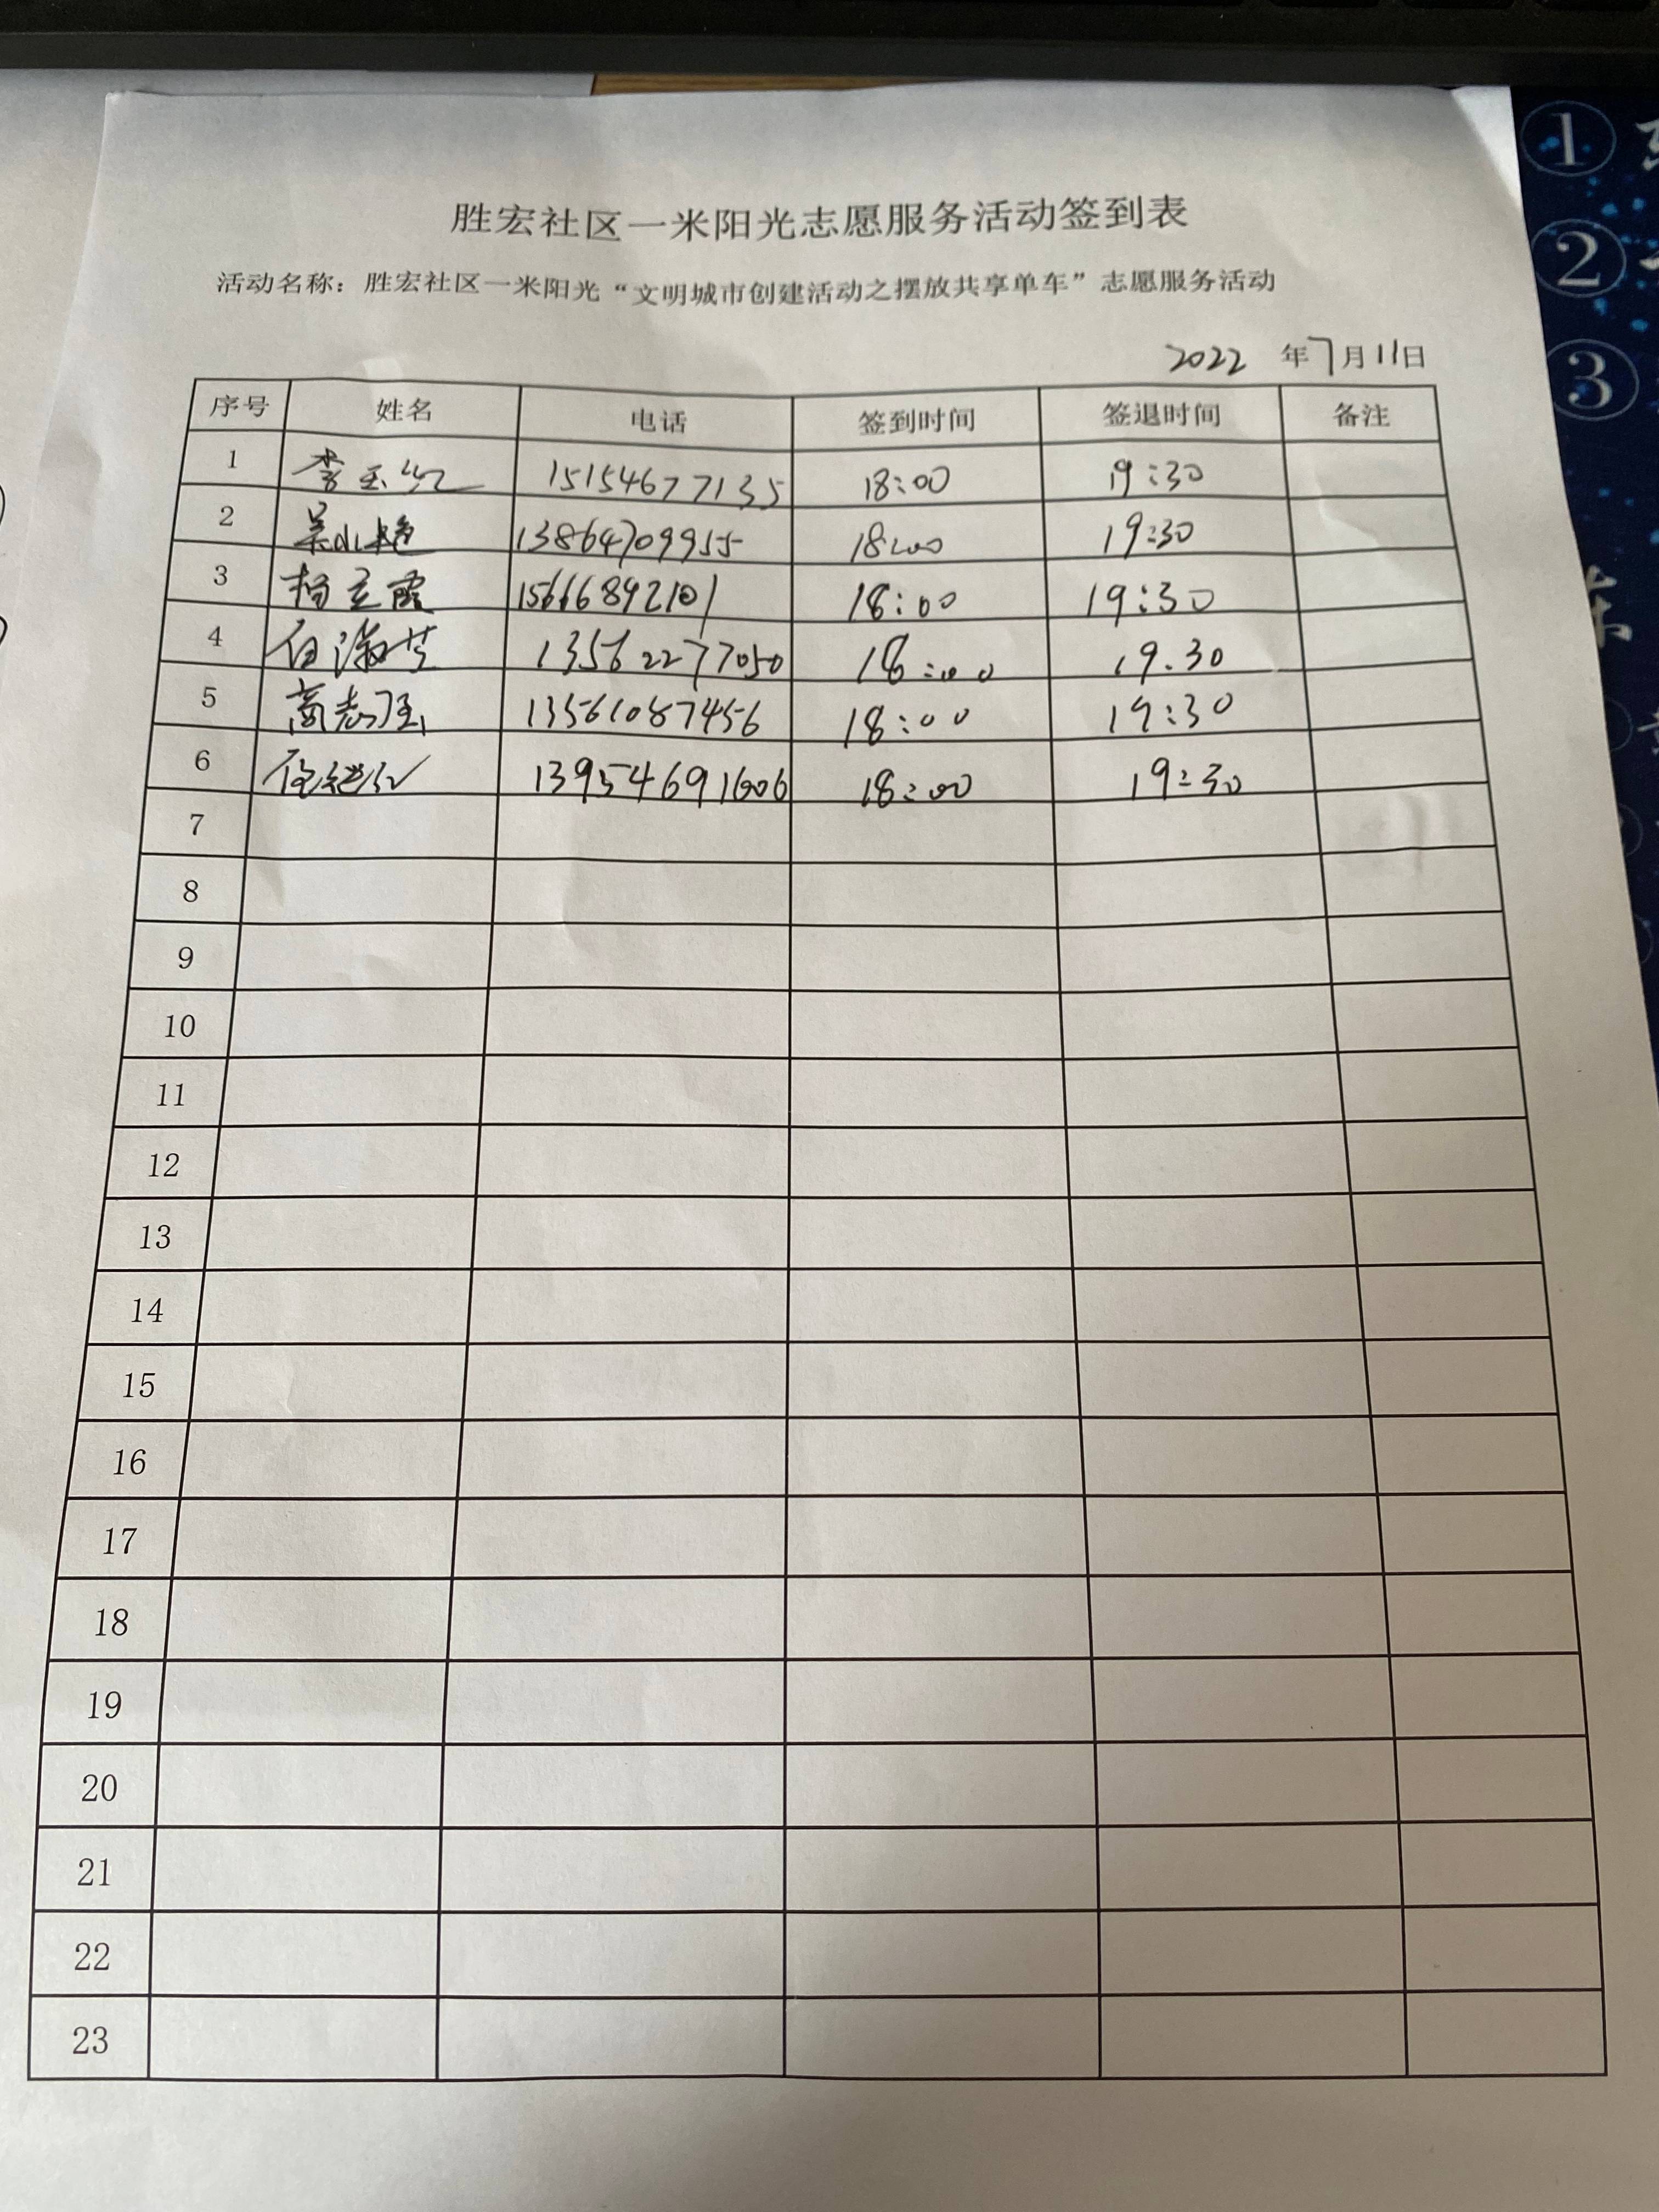 胜宏社区一米阳光志愿服务活动签到表
活动名称：胜宏社区一米阳光“文明城市创建活动之摆放共享单车”志愿服务活动
2022 年7月11日
序号 姓名 电话 签到时间 签退时间 备注
1 李玉红 15154677135 18:00 19:30
2 吴小艳 13864709955 18:00 19:30
3 杨立霞 15666892101 18:00 19:30
4 白淑芳 13562277050 18:00 19.30
5 高志强 13561087456 18:00 19:30
6 13954691606 18:00 19:30
7
8
9
10
11
12
13
14
15
16
17
18
19
20
21
22
23
①
②
③